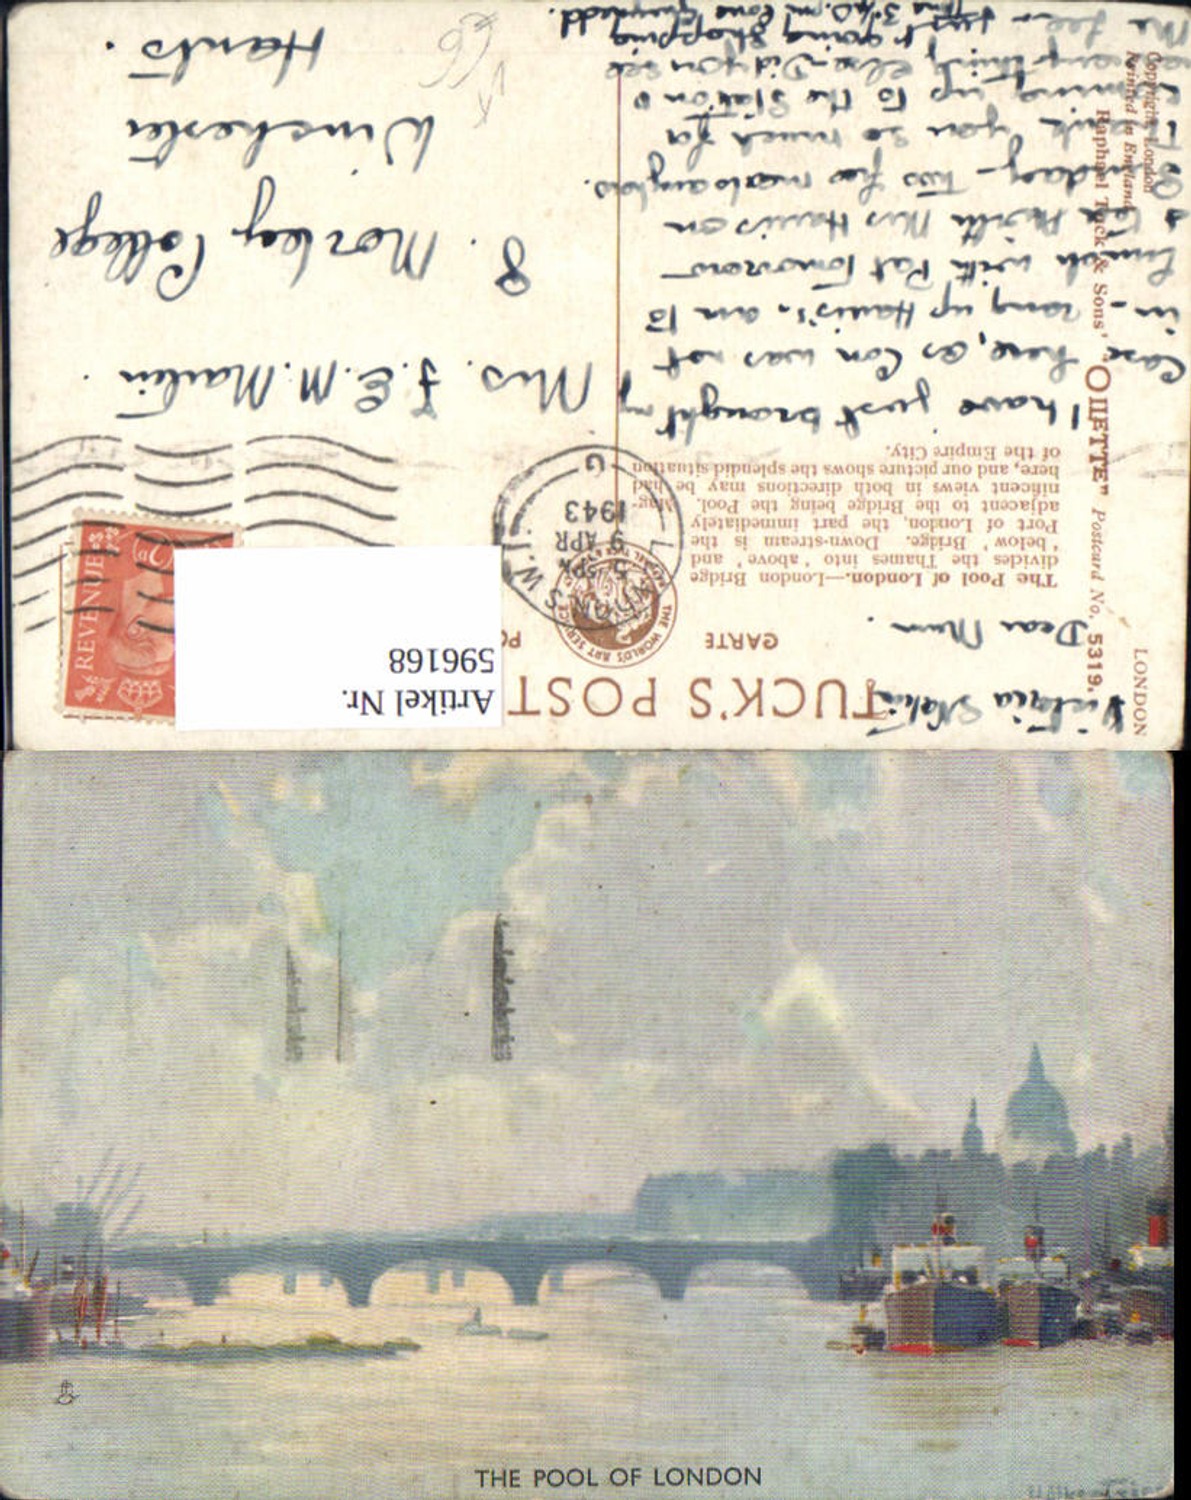 TUCK'S POST
CARTE
LONDON
"OILETTE" Postcard No. 5319.
Raphael Tuck & Sons'
Copyright London
Printed in England
THE WORLD'S ART SERVICE
The Pool of London.—London Bridge
divides the Thames into 'above' and
'below' Bridge. Down-stream is the
Port of London, the part immediately
adjacent to the Bridge being the Pool. Mag-
nificent views in both directions may be had
here, and our picture shows the splendid situation
of the Empire City.
Victoria
Dear Mum.
I have just brought my
case here, as Con was not
in - rang up Harris's. am to
lunch with Pat tomorrow
& Miss Harris on
Sunday - Two
Thank you so much for
coming up to the Station &
everything else - Did you see
me
just going shopping
5.15 PM
9 APR
1943
G
S.W.1
REVENUE
Artikel Nr.
596168
Mrs. F. E. M. Martin.
8. Morley College
Winchester
Hants.
THE POOL OF LONDON